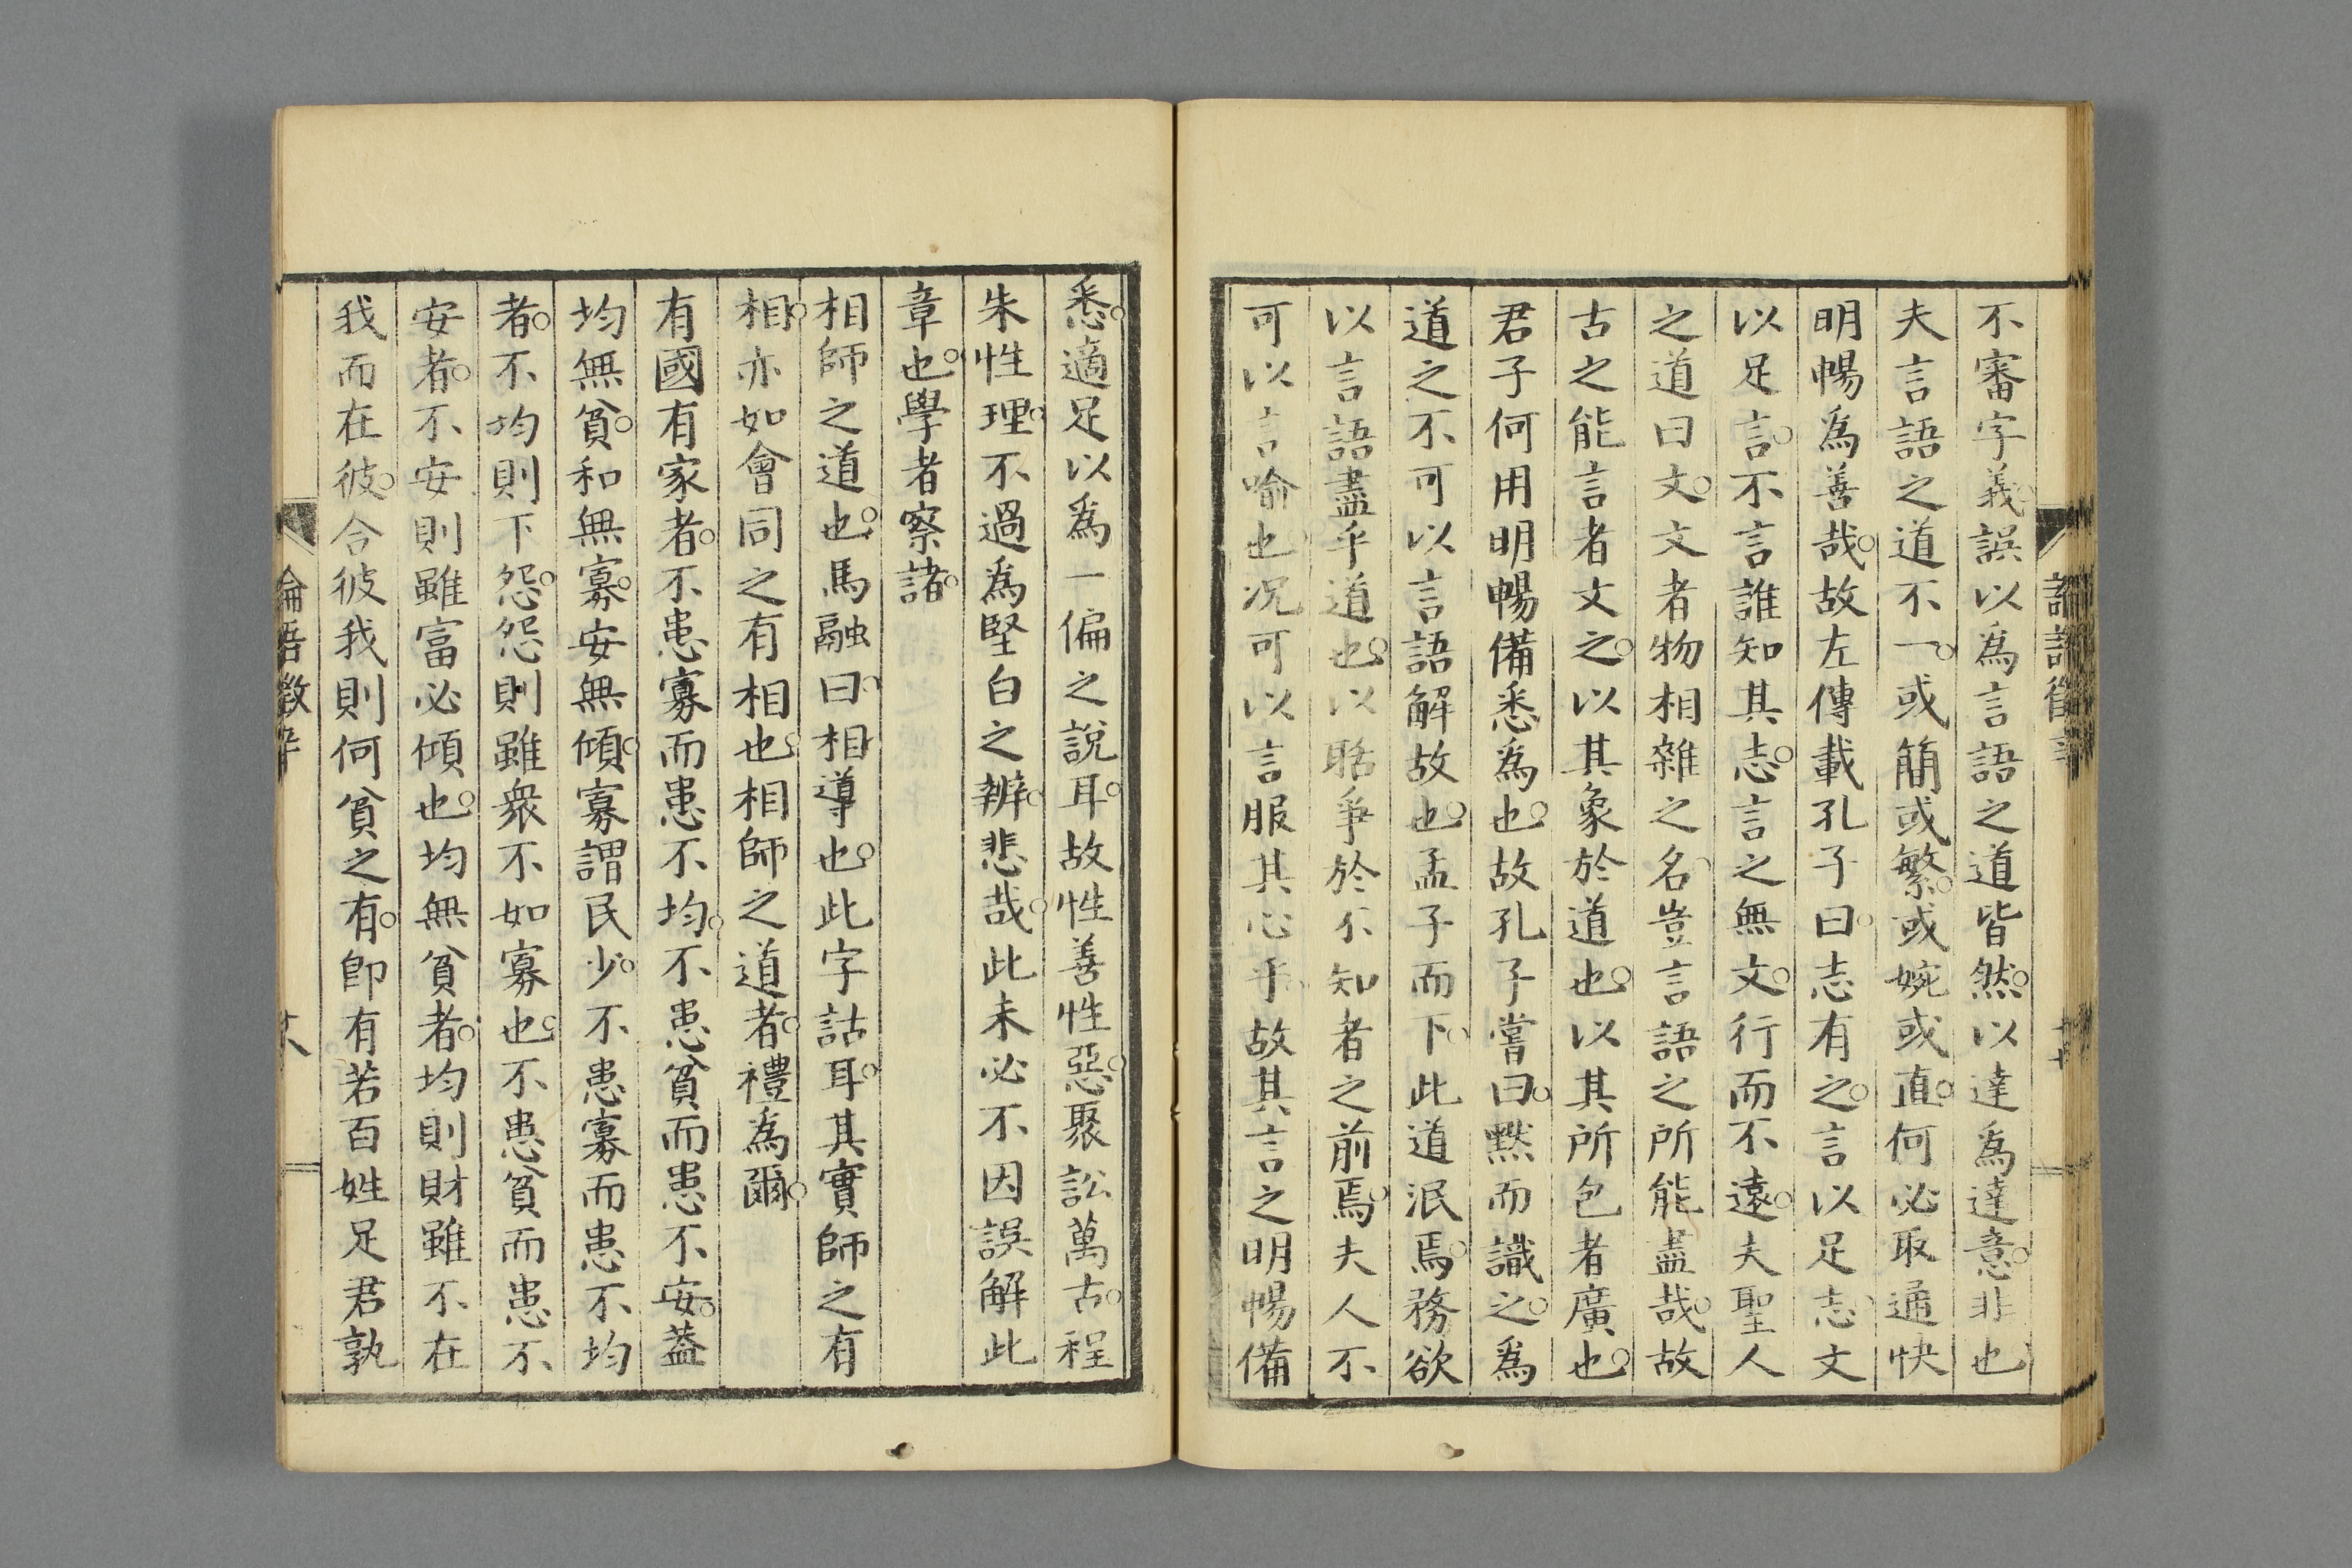 不審字義誤以為言語之道皆然以達為達意非也
夫言語之道不一或簡或繁或婉或直何必取通快
明暢為善哉故左傳載孔子曰志有之言以足志文
以足言不言誰知其志言之無文行而不遠夫聖人
之道曰文文者物相雜之名豈言語之所能盡哉故
古之能言者文之以其象於道也以其所包者廣也
君子何用明暢備悉為也故孔子嘗曰默而識之為
道之不可以言語解故也孟子而下此道泯焉務欲
以言語盡乎道也以聒爭於不知者之前焉夫人不
可以言喻也況可以言服其心乎故其言之明暢備
悉適足以為一偏之說耳故性善性惡聚訟萬古程
朱性理不過為堅白之辨悲哉此未必不因誤解此
章也學者察諸
相師之道也馬融曰相導也此字詁耳其實師之有
相亦如會同之有相也相師之道者禮為爾
有國有家者不患寡而患不均不患貧而患不安蓋
均無貧和無寡安無傾寡謂民少不患寡而患不均
者不均則下怨怨則雖衆不如寡也不患貧而患不
安者不安則雖富必傾也均無貧者均則財雖不在
我而在彼合彼我則何貧之有即有若百姓足君孰